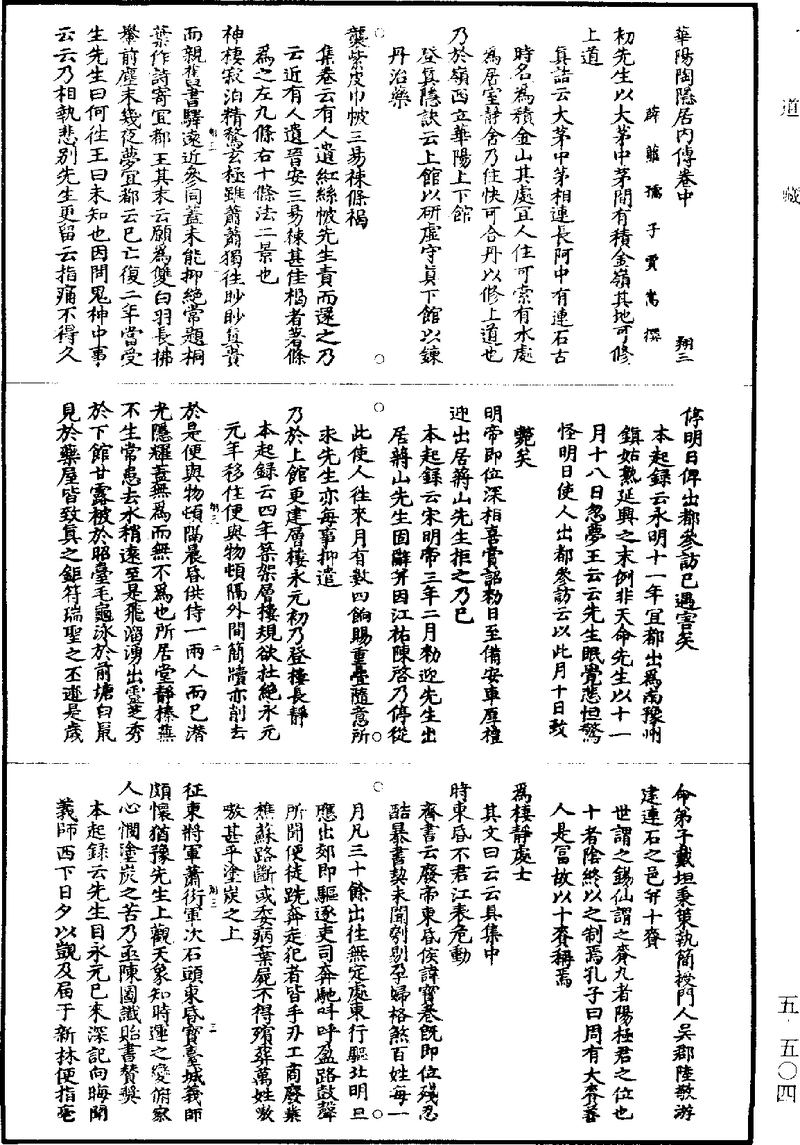 道藏
華陽陶隱居內傳卷中 翔三
薛蘿孺子賈嵩撰
初先生以大茅中茅間有積金嶺其地可修
上道
真誥云大茅中茅相連長阿中有連石古
時名為積金山其處宜人住可索有水處
為居室靜舍乃往快可合丹以修上道也
乃於嶺西立華陽上下館
登真隱訣云上館以研虛守真下館以鍊
丹治藥
襲紫皮巾帔三易棟條褐
集卷云有人遺紅絲帔先生責而還之乃
云近有人遺晉安三易棟甚佳褐者著條
為之左九條右十條法二景也
神棲寂泊精驚玄極雖蕭蕭獨往眇眇真貴
而親舊書驛遠近參同蓋未能抑絕常題桐
葉作詩寄宜都王其末云願為雙白羽長拂
槃前塵末幾夜夢宜都云已亡復二年當受
生先生曰何往王曰未知也因問鬼神中事
云云乃相執悲別先生更留云指痛不得久
停明日俾出都參訪已遇害矣
本起錄云永明十一年宜都出為南豫州
鎮姑熟延興之末例非天命先生以十一
月十八日忽夢王云云先生眠覺悲怛驚
怪明日使人出都參訪云以此月十日致
斃矣
明帝即位深相喜賞詔勑日至備安車厚禮
迎出居蔣山先生拒之乃已
本起錄云宋明帝三年二月勑迎先生出
居蔣山先生固辭并因江祐陳啓乃停從
此使人往來月有數四餉賜重疊隨意所
求先生亦每事抑遣
乃於上館更建層樓永元初乃登樓長靜
本起錄云四年築架層樓規欲杜絕永元
元年移住便與物頓隔外間簡牘亦削去
於是便與物頓隔晨昏供侍一兩人而已潛
光隱耀蓋無為而無不為也所居堂靜榛蕪
不生常患去水稍遠至是飛溜湧出靈芝秀
於下館甘露被於昭臺毛龜泳於前塘白鼠
見於藥屋皆致真之鉅符瑞聖之丕迹是歲
命弟子戴坦秉策執簡授門人吳郡陸敬游
建連石之邑并十賚
世謂之錫仙謂之賚九者陽極君之位也
十者陰終以之制焉孔子曰周有大賚善
人是富故以十賚稱焉
為棲靜處士
其文曰云云具集中
時東昏不君江表危動
齊書云廢帝東昏侯諱寶卷既即位殘忍
酷暴書契未聞刳剔孕婦格煞百姓每一
月凡三十餘出往無定處東行驅北明旦
應出郊即驅逐吏司奔馳叫呼盈路鼓聲
所聞便徒跣奔走犯者皆手刃工商廢業
樵蘇路斷或委病棄屍不得殯葬萬姓嗷
嗷甚乎塗炭之上
征東將軍蕭衍軍次石頭東昏寶臺城義師
頗懷猶豫先生上觀天象知時運之變俯察
人心憫塗炭之苦乃亟陳圖讖貽書贊獎
本起錄云先生自永元已來深記向晦聞
義師西下日夕以覬及屆于新林便指毫
五·五〇四